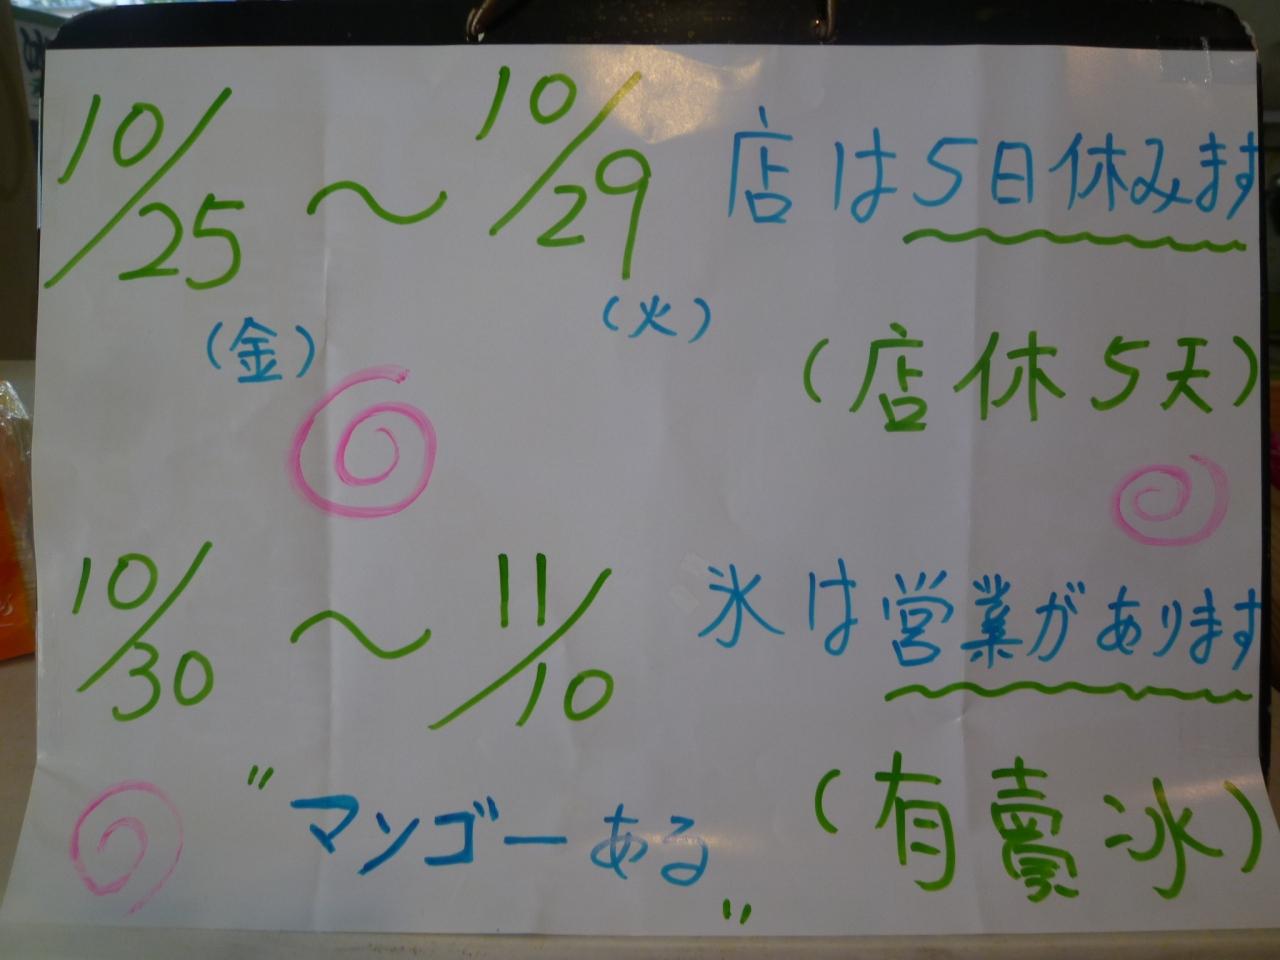 10/25 ~ 10/29 店は5日休みます
(金) (火)
(店休5天)
10/30 ~ 11/10 氷は営業があります
"マンゴーある"
(有賣冰)